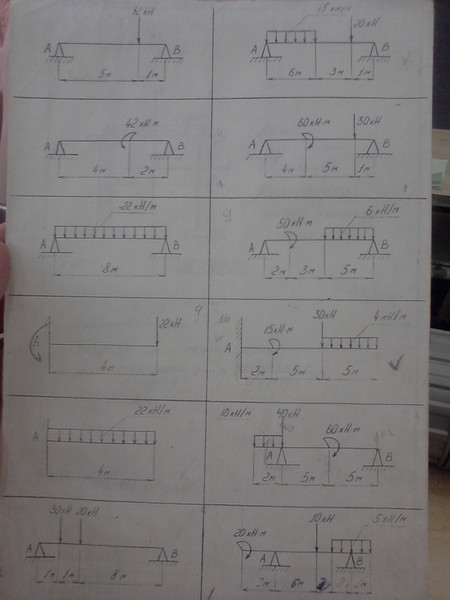 12кН
А В
3м 1м
15кН/м 20кН
А В
6м 3м 1м
42кН·м
А В
4м 2м
60кН·м 30кН
А В
4м 5м 1м
22кН/м
А В
8м
9
50кН·м 6кН/м
А В
2м 3м 5м
22кН
4м
30кН
15кН·м 4кН/м
А
2м 5м 5м
22кН/м
А
4м
10кН/м 40кН
60кН·м
А В
2м 5м 5м
30кН 20кН
А В
1м 1м 8м
20кН·м 10кН 5кН/м
А В
2м 6м 2 2м